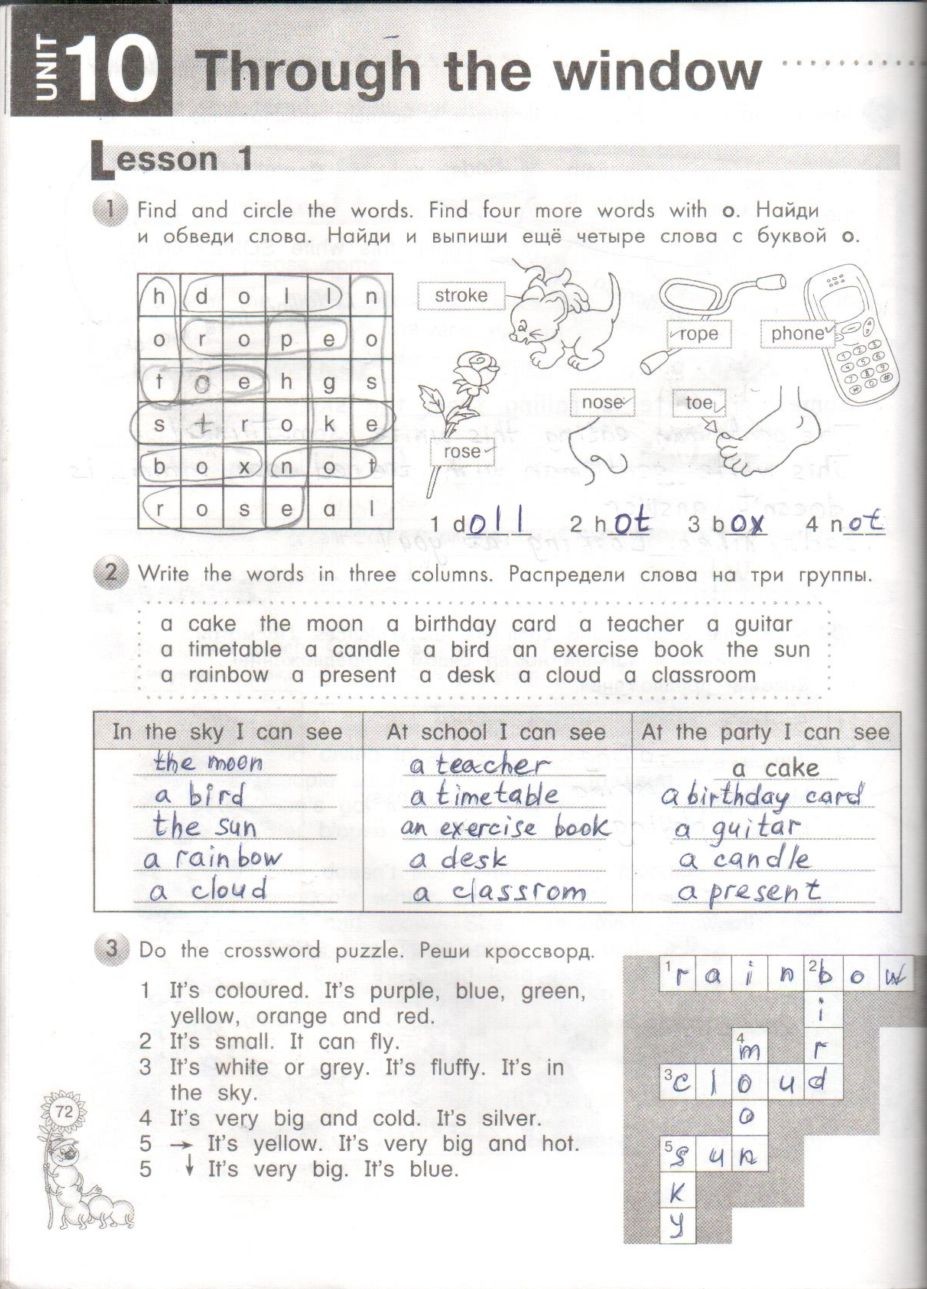 UNIT 10 Through the window
Lesson 1
1 Find and circle the words. Find four more words with o. Найди
и обведи слова. Найди и выпиши ещё четыре слова с буквой о.
h d o l l n
o r o p e o
t o e h g s
s t r o k e
b o x n o t
r o s e a l
stroke
rope
phone
nose
toe
rose
1 doll 2 hot 3 box 4 not
2 Write the words in three columns. Распредели слова на три группы.
a cake the moon a birthday card a teacher a guitar
a timetable a candle a bird an exercise book the sun
a rainbow a present a desk a cloud a classroom
In the sky I can see At school I can see At the party I can see
the moon a teacher a cake
a bird a timetable a birthday card
the sun an exercise book a guitar
a rainbow a desk a candle
a cloud a classrom a present
3 Do the crossword puzzle. Реши кроссворд.
1 It's coloured. It's purple, blue, green,
yellow, orange and red.
2 It's small. It can fly.
3 It's white or grey. It's fluffy. It's in
the sky.
4 It's very big and cold. It's silver.
5 → It's yellow. It's very big and hot.
5 ↓ It's very big. It's blue.
1 r a i n 2 b o w
i
4 m r
3 c l o u d
o
5 s u n
k
y
72